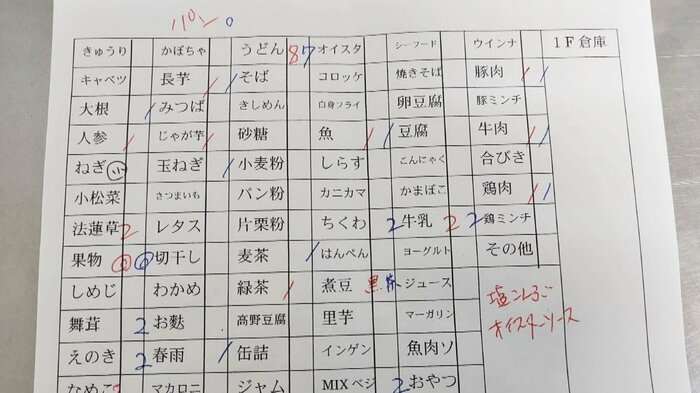 パン 0
きゅうり かぼちゃ うどん 8 7 オイスタ シーフード ウインナ 1F倉庫
キャベツ 長芋 / / そば コロッケ 焼きそば 豚肉 / /
大根 / みつば きしめん 白身フライ 卵豆腐 豚ミンチ
人参 / じゃが芋 / 砂糖 魚 / / 豆腐 牛肉 / /
ねぎ 小 玉ねぎ / 小麦粉 しらす こんにゃく 合びき
小松菜 さつまいも パン粉 カニカマ かまぼこ 鶏肉 / /
法蓮草 2 レタス 片栗粉 ちくわ 2 牛乳 2 2 鶏ミンチ
果物 切干し 麦茶 / はんぺん ヨーグルト その他
しめじ わかめ 緑茶 / 煮豆 黒 茶 ジュース 塩こんぶ
舞茸 2 お麩 高野豆腐 里芋 マーガリン オイスターソース
えのき 2 春雨 / 缶詰 インゲン 魚肉ソ
なめこ マカロニ ジャム MIXベジ 2 おやつ